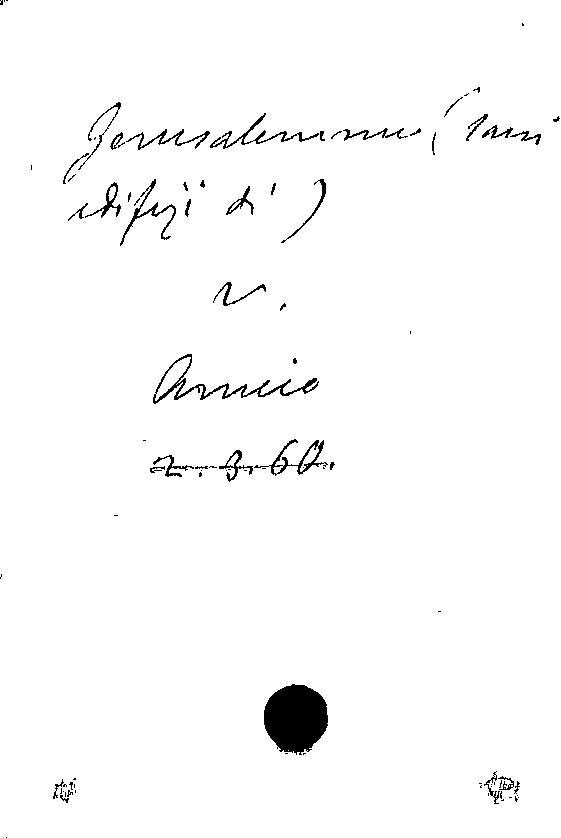 Jerusalemme (sacri
edifizj di)
v.
Amico
2.3.60.